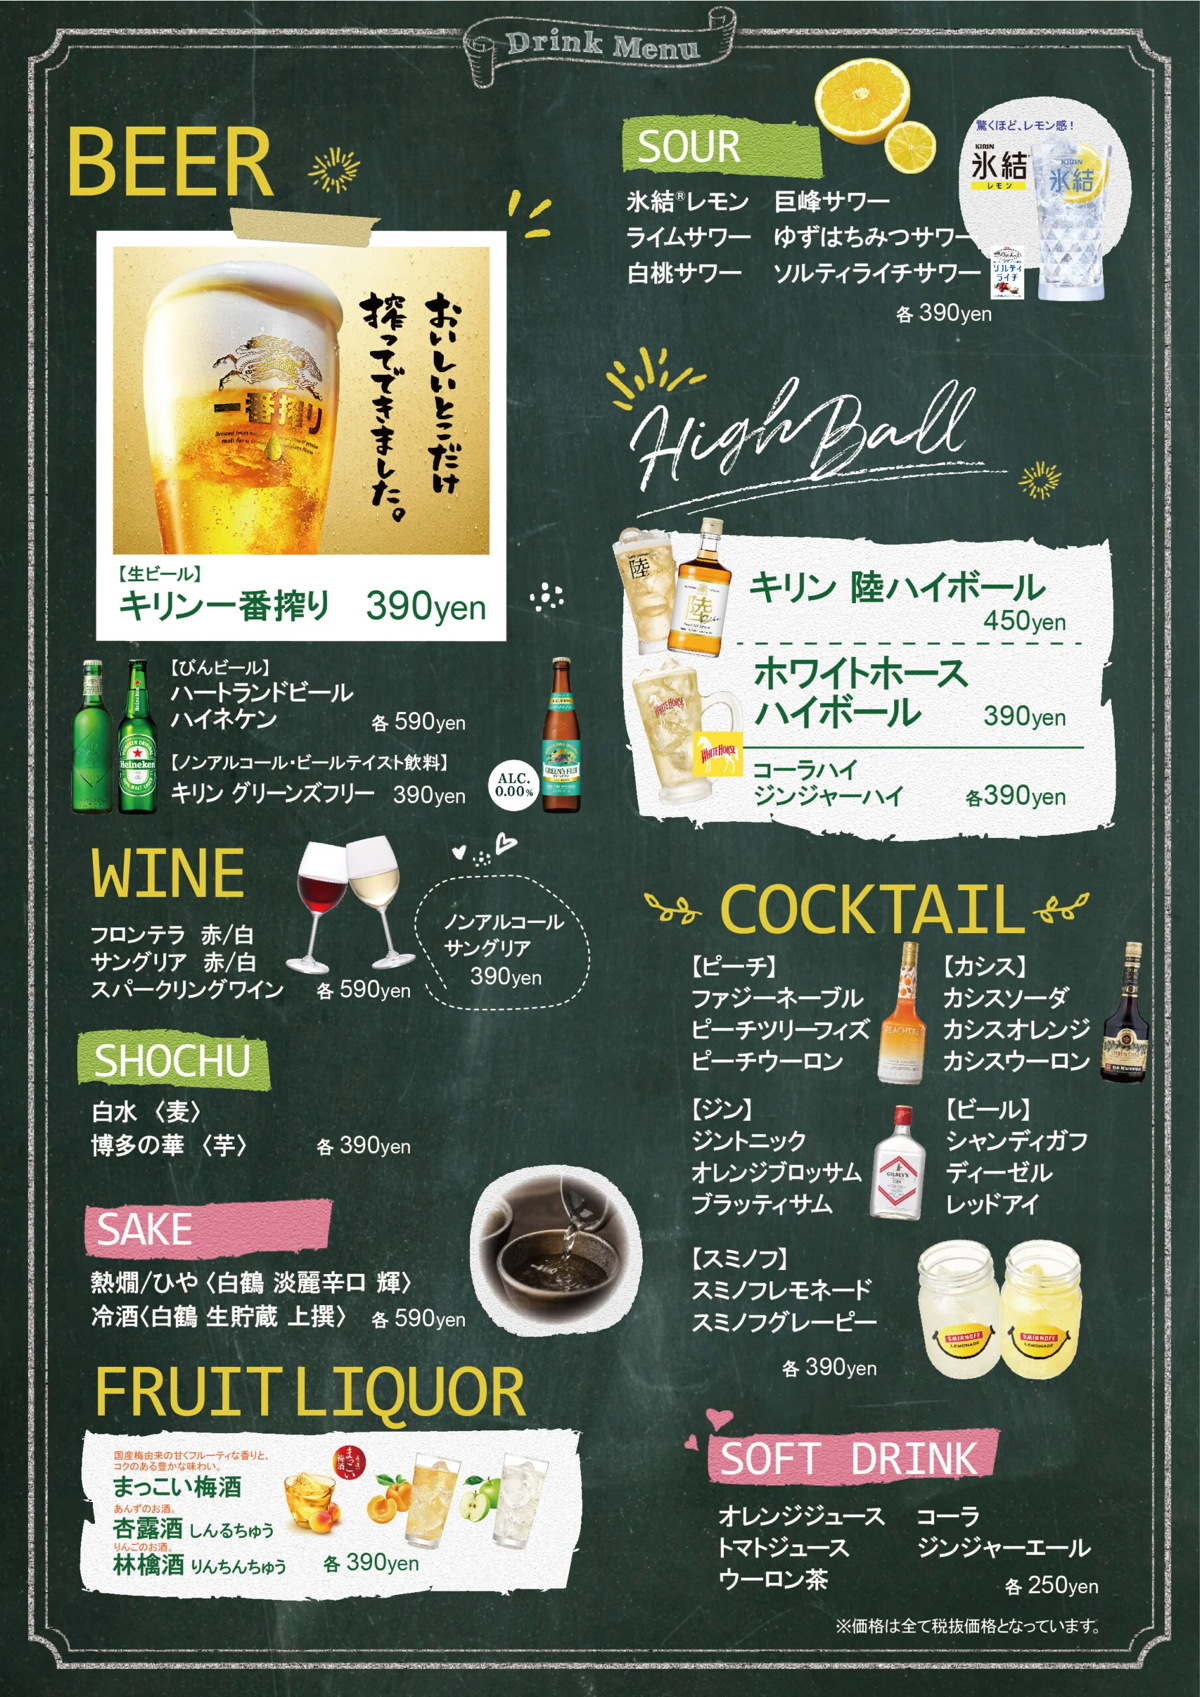 Drink Menu
BEER
おいしいとこだけ
搾ってできました。
一番搾り
【生ビール】
キリン一番搾り 390yen
【びんビール】
ハートランドビール
ハイネケン 各 590yen
Heineken
【ノンアルコール・ビールテイスト飲料】
キリン グリーンズフリー 390yen
ALC.
0.00%
GREEN'S FREE
WINE
フロンテラ 赤/白
サングリア 赤/白
スパークリングワイン 各 590yen
ノンアルコール
サングリア
390yen
SHOCHU
白水 〈麦〉
博多の華 〈芋〉 各 390yen
SAKE
熱燗/ひや 〈白鶴 淡麗辛口 輝〉
冷酒〈白鶴 生貯蔵 上撰〉 各 590yen
FRUIT LIQUOR
国産梅由来の甘くフルーティな香りと、
コクのある豊かな味わい。
まっこい梅酒
まっこい
梅酒
あんずのお酒。
杏露酒 しんるちゅう
りんごのお酒。
林檎酒 りんちんちゅう 各 390yen
SOUR
氷結®レモン 巨峰サワー
ライムサワー ゆずはちみつサワー
白桃サワー ソルティライチサワー
各 390yen
驚くほど、レモン感!
KIRIN
氷結
レモン
KIRIN
氷結
ソルティ
ライチ
HighBall
陸
陸
キリン 陸ハイボール
450yen
WHITE HORSE
WHITE HORSE
ホワイトホース
ハイボール 390yen
コーラハイ
ジンジャーハイ 各390yen
COCKTAIL
【ピーチ】
ファジーネーブル
ピーチツリーフィズ
ピーチウーロン
PEACHTREE
【カシス】
カシスソーダ
カシスオレンジ
カシスウーロン
【ジン】
ジントニック
オレンジブロッサム
ブラッティサム
GILBEY'S
【ビール】
シャンディガフ
ディーゼル
レッドアイ
【スミノフ】
スミノフレモネード
スミノフグレーピー
各 390yen
SMIRNOFF
LEMONADE
SMIRNOFF
LEMONADE
SOFT DRINK
オレンジジュース コーラ
トマトジュース ジンジャーエール
ウーロン茶
各 250yen
※価格は全て税抜価格となっています。